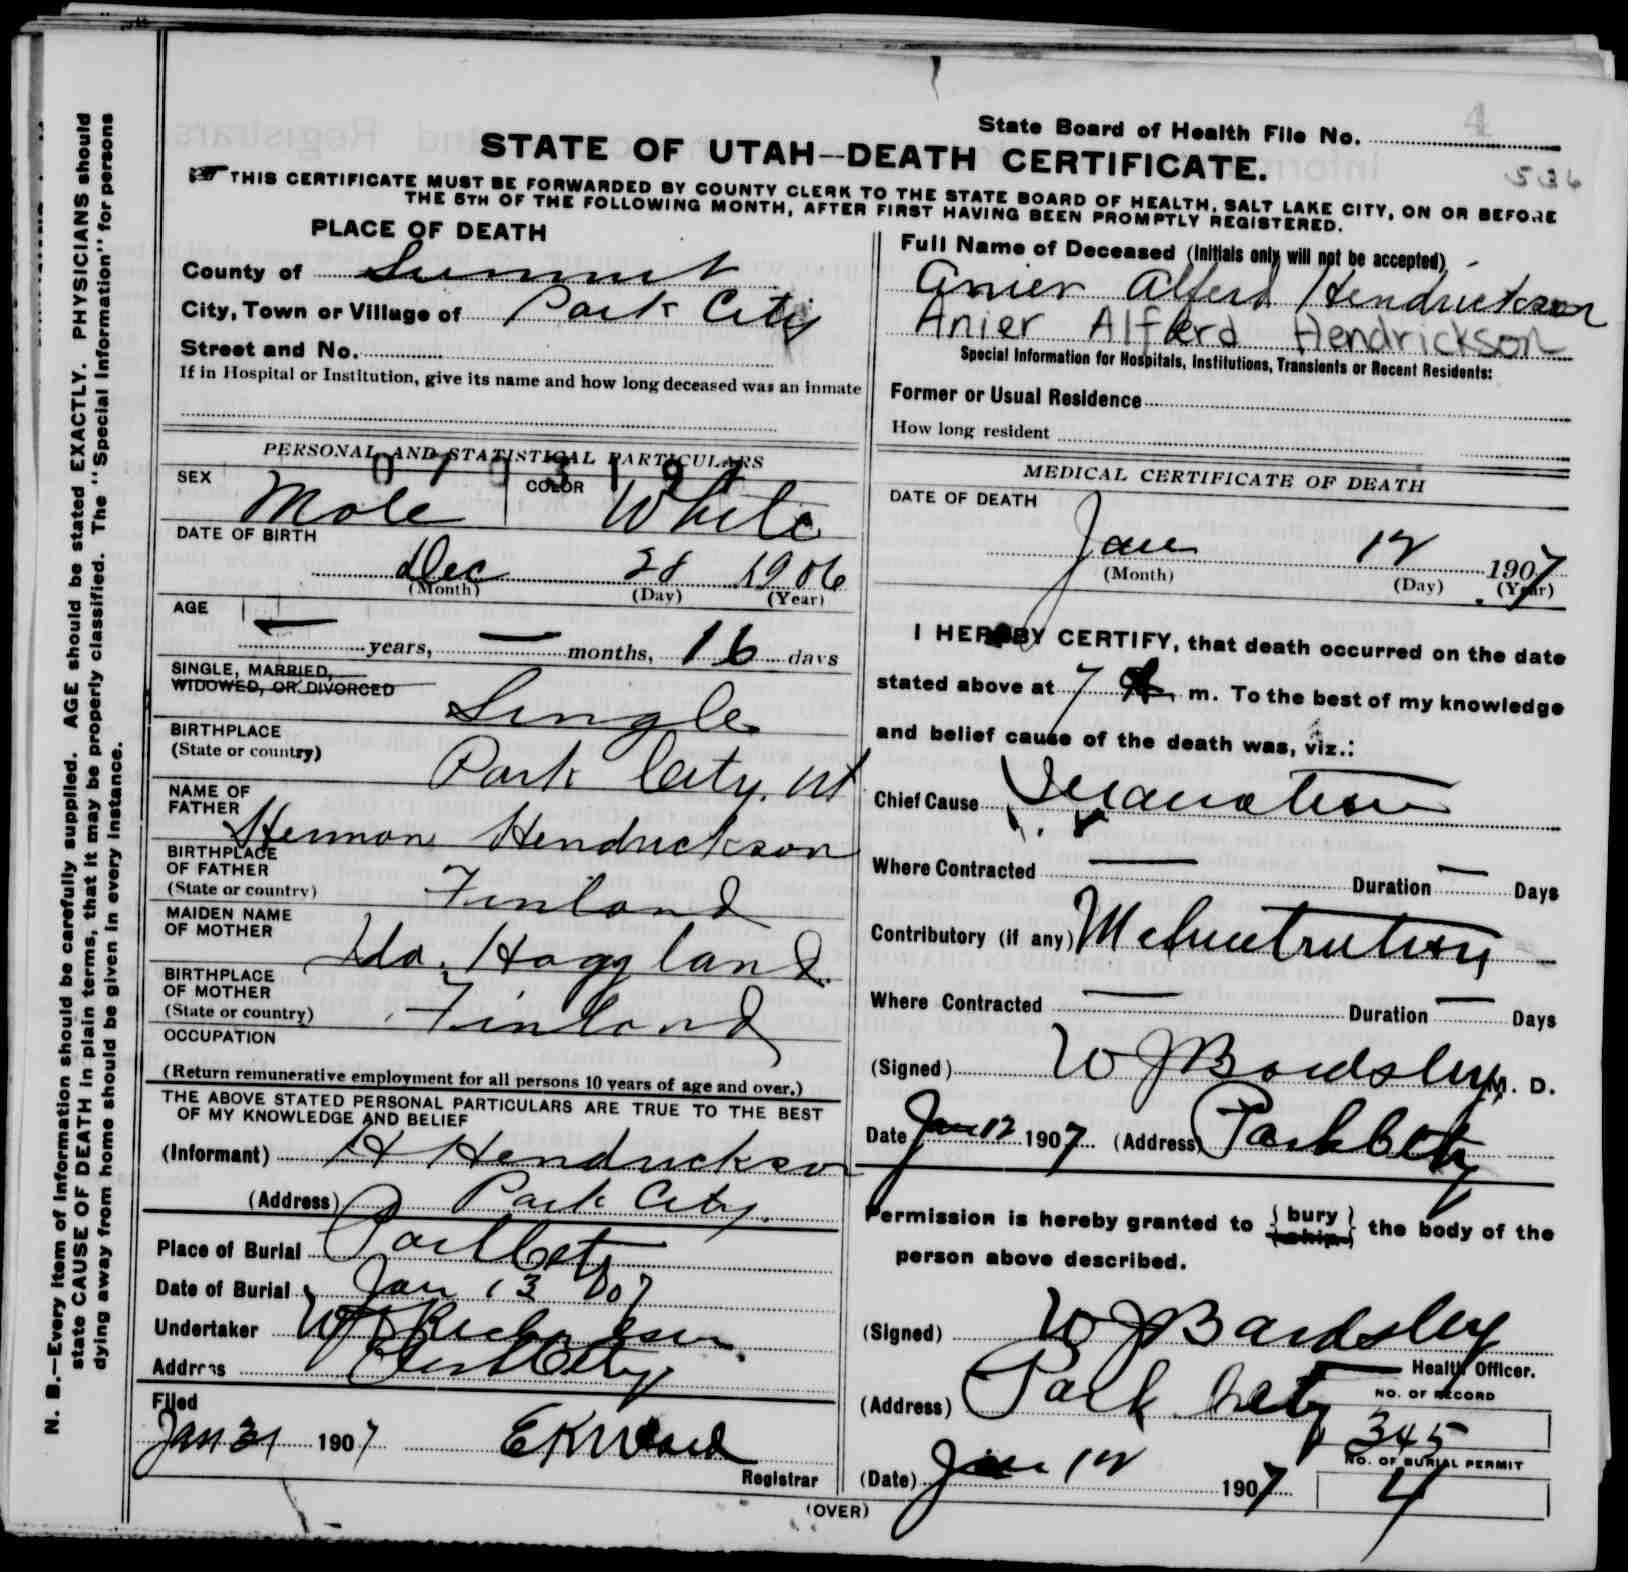 State Board of Health File No.
4
536
STATE OF UTAH—DEATH CERTIFICATE.
THIS CERTIFICATE MUST BE FORWARDED BY COUNTY CLERK TO THE STATE BOARD OF HEALTH, SALT LAKE CITY, ON OR BEFORE
THE 5TH OF THE FOLLOWING MONTH, AFTER FIRST HAVING BEEN PROMPTLY REGISTERED.
PLACE OF DEATH
County of Summit
City, Town or Village of Park City
Street and No.
If in Hospital or Institution, give its name and how long deceased was an inmate
Full Name of Deceased (Initials only will not be accepted)
Anier Alferd Hendrickson
Anier Alferd Hendrickson
Special Information for Hospitals, Institutions, Transients or Recent Residents:
Former or Usual Residence
How long resident
PERSONAL AND STATISTICAL PARTICULARS
SEX Male COLOR White
DATE OF BIRTH
Dec 28 1906
(Month) (Day) (Year)
AGE
— years, — months, 16 days
SINGLE, MARRIED,
WIDOWED, OR DIVORCED Single
BIRTHPLACE
(State or country) Park City, Ut
NAME OF
FATHER Herman Hendrickson
BIRTHPLACE
OF FATHER
(State or country) Finland
MAIDEN NAME
OF MOTHER Ida Haggland
BIRTHPLACE
OF MOTHER
(State or country) Finland
OCCUPATION
(Return remunerative employment for all persons 10 years of age and over.)
THE ABOVE STATED PERSONAL PARTICULARS ARE TRUE TO THE BEST
OF MY KNOWLEDGE AND BELIEF
(Informant) H Hendrickson
(Address) Park City
Place of Burial Park City
Date of Burial Jan 13 1907
Undertaker
Address Park City
Filed
Jan 31 1907 E K Ward
Registrar
MEDICAL CERTIFICATE OF DEATH
DATE OF DEATH
Jan 12 1907
(Month) (Day) (Year)
I HEREBY CERTIFY, that death occurred on the date
stated above at 7 A m. To the best of my knowledge
and belief cause of the death was, viz.:
Chief Cause Inanation
Where Contracted — Duration — Days
Contributory (if any) Malnutrution
Where Contracted — Duration — Days
(Signed) W J Bardsley M. D.
Date Jan 12 1907 (Address) Park City
Permission is hereby granted to { bury / ship } the body of the
person above described.
(Signed) W J Bardsley
Health Officer.
(Address) Park City
NO. OF RECORD
345
NO. OF BURIAL PERMIT
4
(Date) Jan 12 1907
(OVER)
N. B.—Every item of information should be carefully supplied. AGE should be stated EXACTLY. PHYSICIANS should
state CAUSE OF DEATH in plain terms, that it may be properly classified. The "Special Information" for persons
dying away from home should be given in every instance.